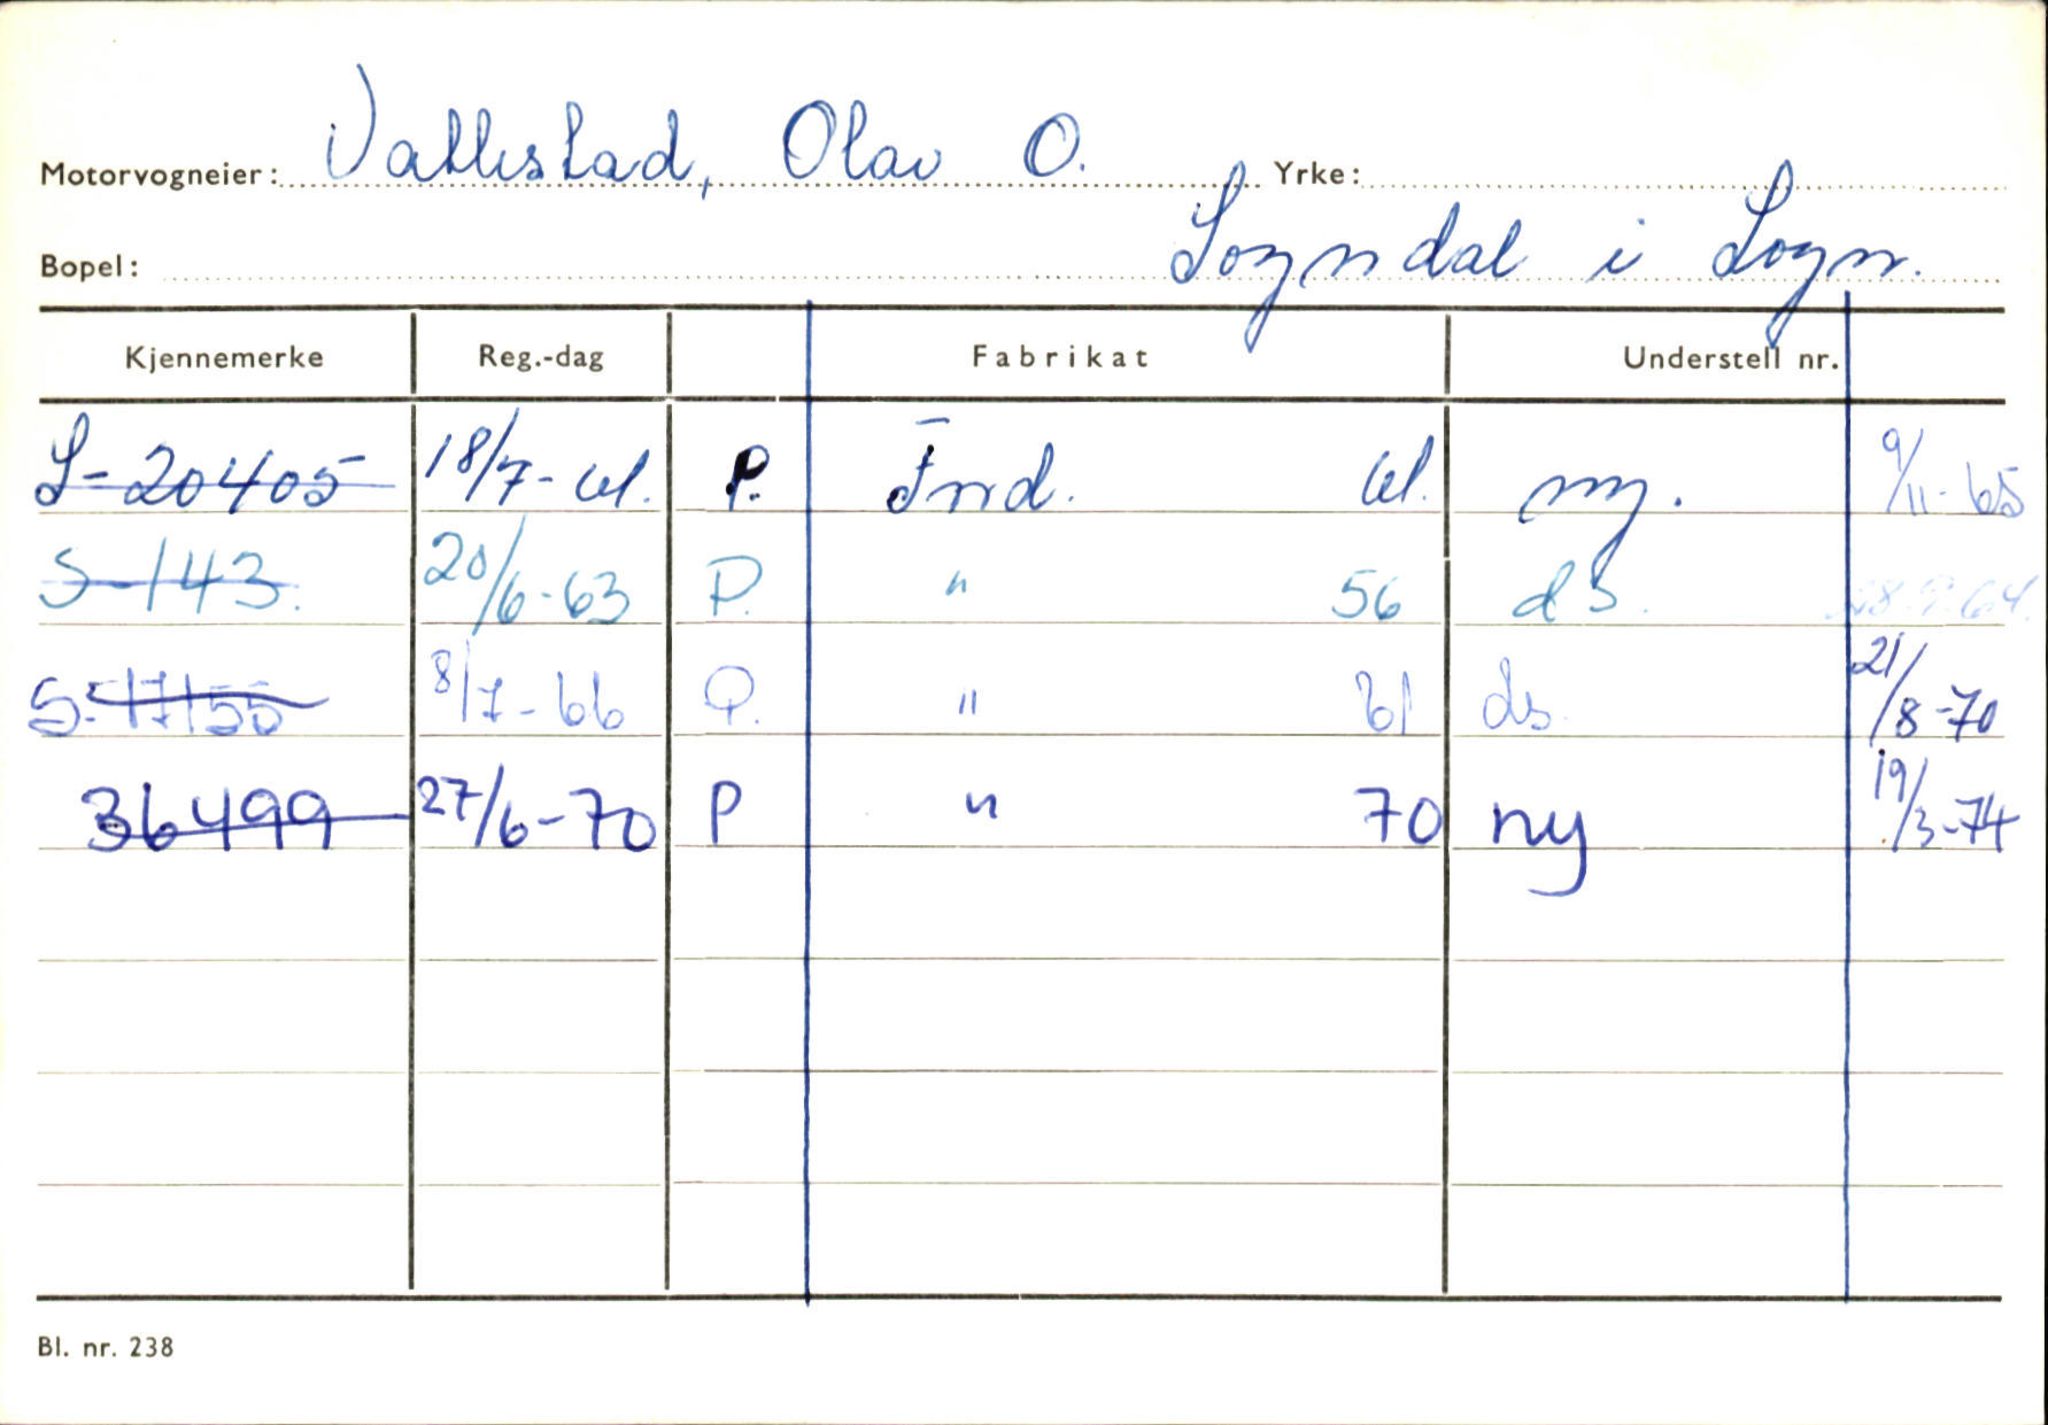 Motorvogneier: Vatlestad, Olav O. Yrke:
Bopel: Sogndal i Sogn.
Kjennemerke Reg.-dag Fabrikat Understell nr.
S-20405 18/7-61. P. Ford. 61. ny. 9/11-65
S-143. 20/6-63 P. " 56 ds. 64.
S-17155 8/7-66 P. " 61 ds. 21/8-70
36499 27/6-70 P " 70 ny 19/3-74
Bl. nr. 238